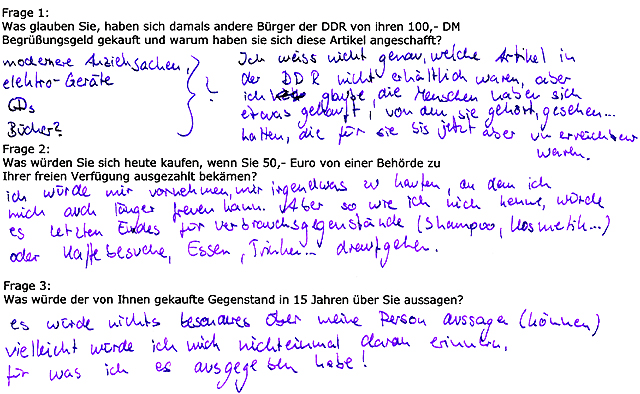 Frage 1:
Was glauben Sie, haben sich damals andere Bürger der DDR von ihren 100,- DM
Begrüßungsgeld gekauft und warum haben sie sich diese Artikel angeschafft?
modernere Anziehsachen,
elektro-Geräte
CDs
Bücher?
?
Ich weiss nicht genau, welche Artikel in
der DDR nicht erhältlich waren, aber
ich glaube, die Menschen haben sich
etwas gekauft, von dem sie gehört, gesehen...
hatten, die für sie bis jetzt aber unerreichbar
waren.
Frage 2:
Was würden Sie sich heute kaufen, wenn Sie 50,- Euro von einer Behörde zu
Ihrer freien Verfügung ausgezahlt bekämen?
ich würde mir vornehmen, mir irgendwas zu kaufen, an dem ich
mich auch länger freuen kann. Aber so wie ich mich kenne, würde
es letzten Endes für Verbrauchsgegenstände (Shampoo, Kosmetik...)
oder Kaffebesuche, Essen, Trinken... draufgehen.
Frage 3:
Was würde der von Ihnen gekaufte Gegenstand in 15 Jahren über Sie aussagen?
es würde nichts besonderes über meine Person aussagen (können)
vielleicht würde ich mich nichteinmal daran erinnern,
für was ich es ausgegeben habe!